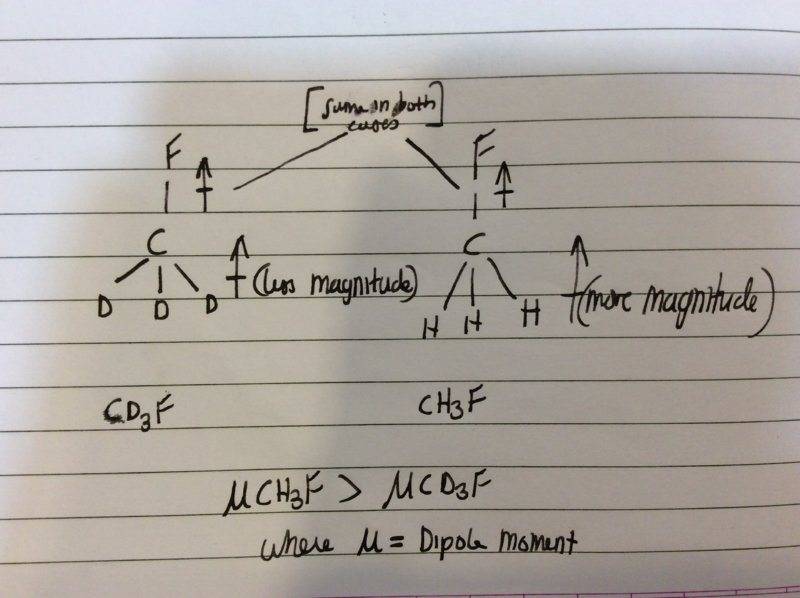 [Same in both
cases]
F
F
C
(less magnitude)
C
(more magnitude)
D D D
H H H
CD3F
CH3F
μCH3F > μCD3F
where μ = Dipole moment